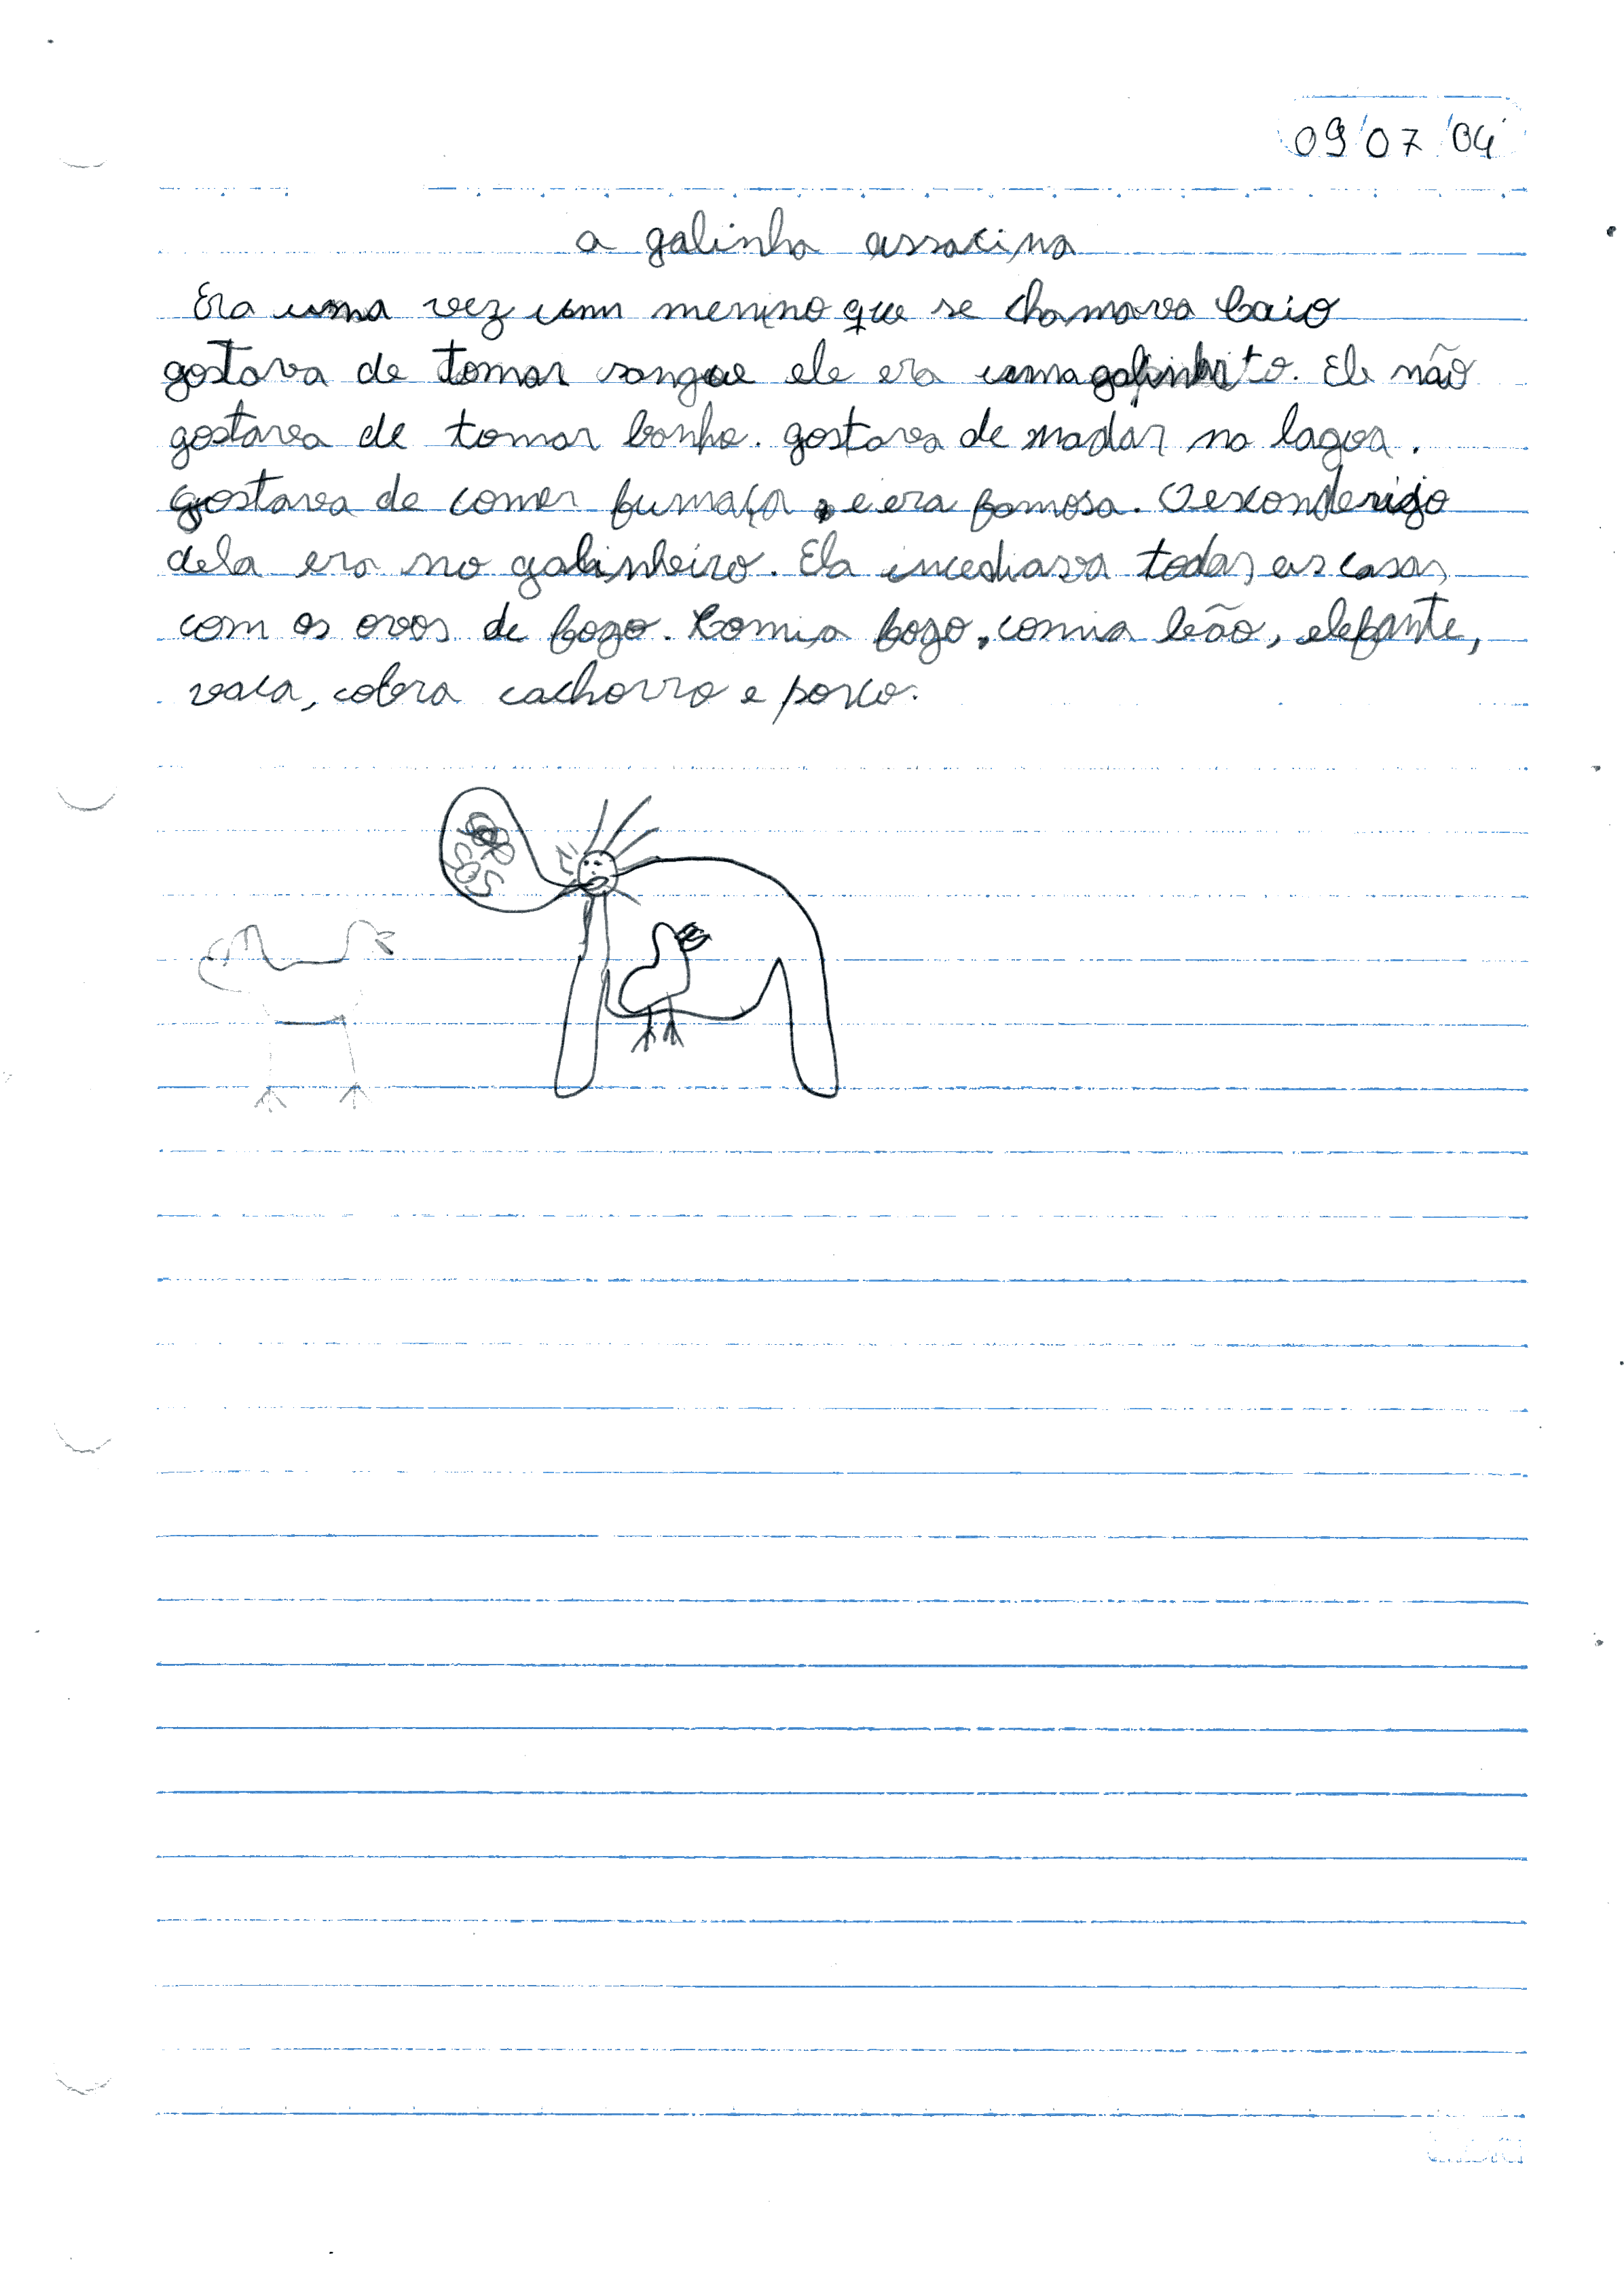 09 07 04
a galinha assacina
Era uma vez um menino que se chamava Caio
gostava de tomar sangue ele era uma galinhito. Ele não
gostava de tomar banho. gostava de nadar na lagoa.
Gostava de comer fumaça, e era famosa. O esconderijo
dela era no galinheiro. Ela incediava todas as casas
com os ovos de fogo. Comia fogo, comia leão, elefante,
vaca, cobra cachorro e porco.
SOS